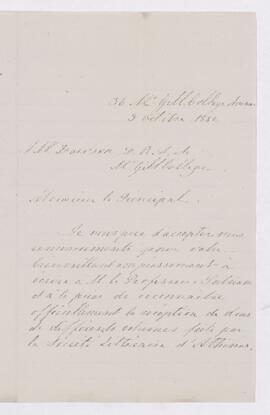 36 McGill College Avenue
3 Octobre 188
J W Dawson
McGill College
Monsieur le Principal
Je vous prie d'accepter mes
remerciements pour votre
bienveillant empressement à
écrire à M. le Professeur
et à le prier de reconnaître
officiellement la réception de dons
de différents volumes faits par
la Société Littéraire d'Athènes.